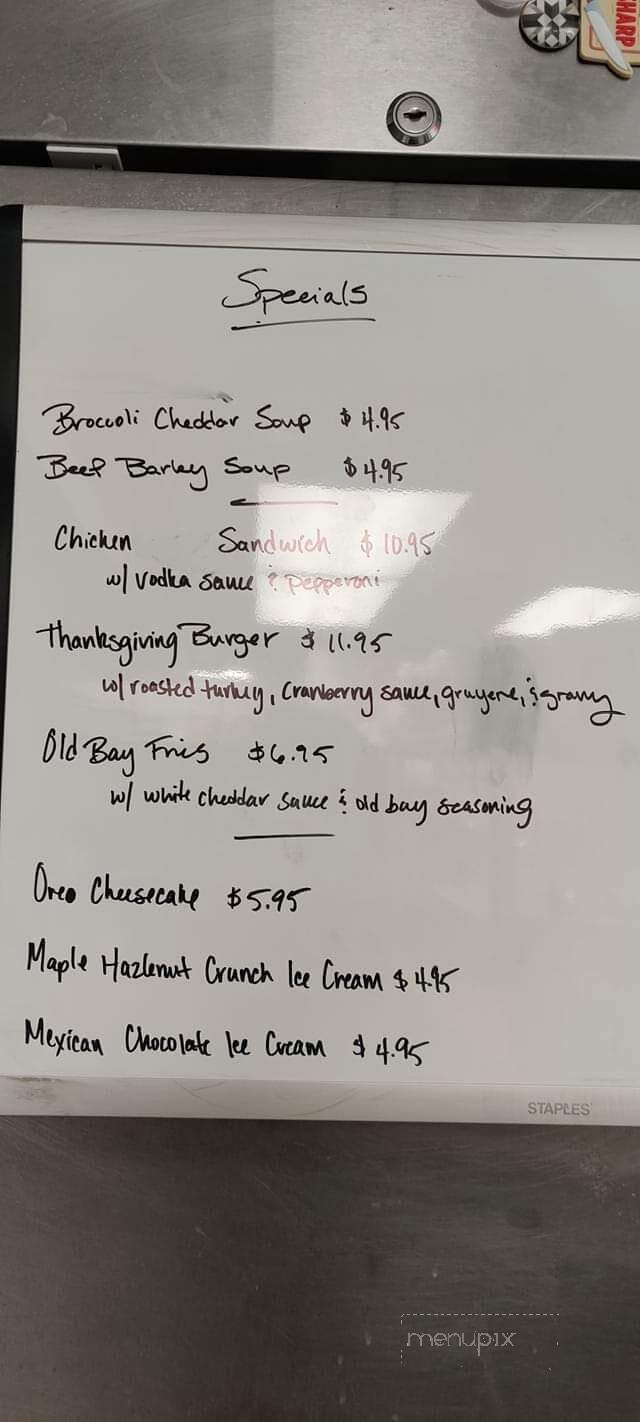 HARP
Specials
Broccoli Cheddar Soup $4.95
Beef Barley Soup $4.95
Chicken Sandwich $10.95
w/ vodka sauce & pepperoni
Thanksgiving Burger $11.95
w/ roasted turkey, cranberry sauce, gruyere, & gravy
Old Bay Fries $6.95
w/ white cheddar sauce & old bay seasoning
Oreo Cheesecake $5.95
Maple Hazlenut Crunch Ice Cream $4.95
Mexican Chocolate Ice Cream $4.95
STAPLES
menupix